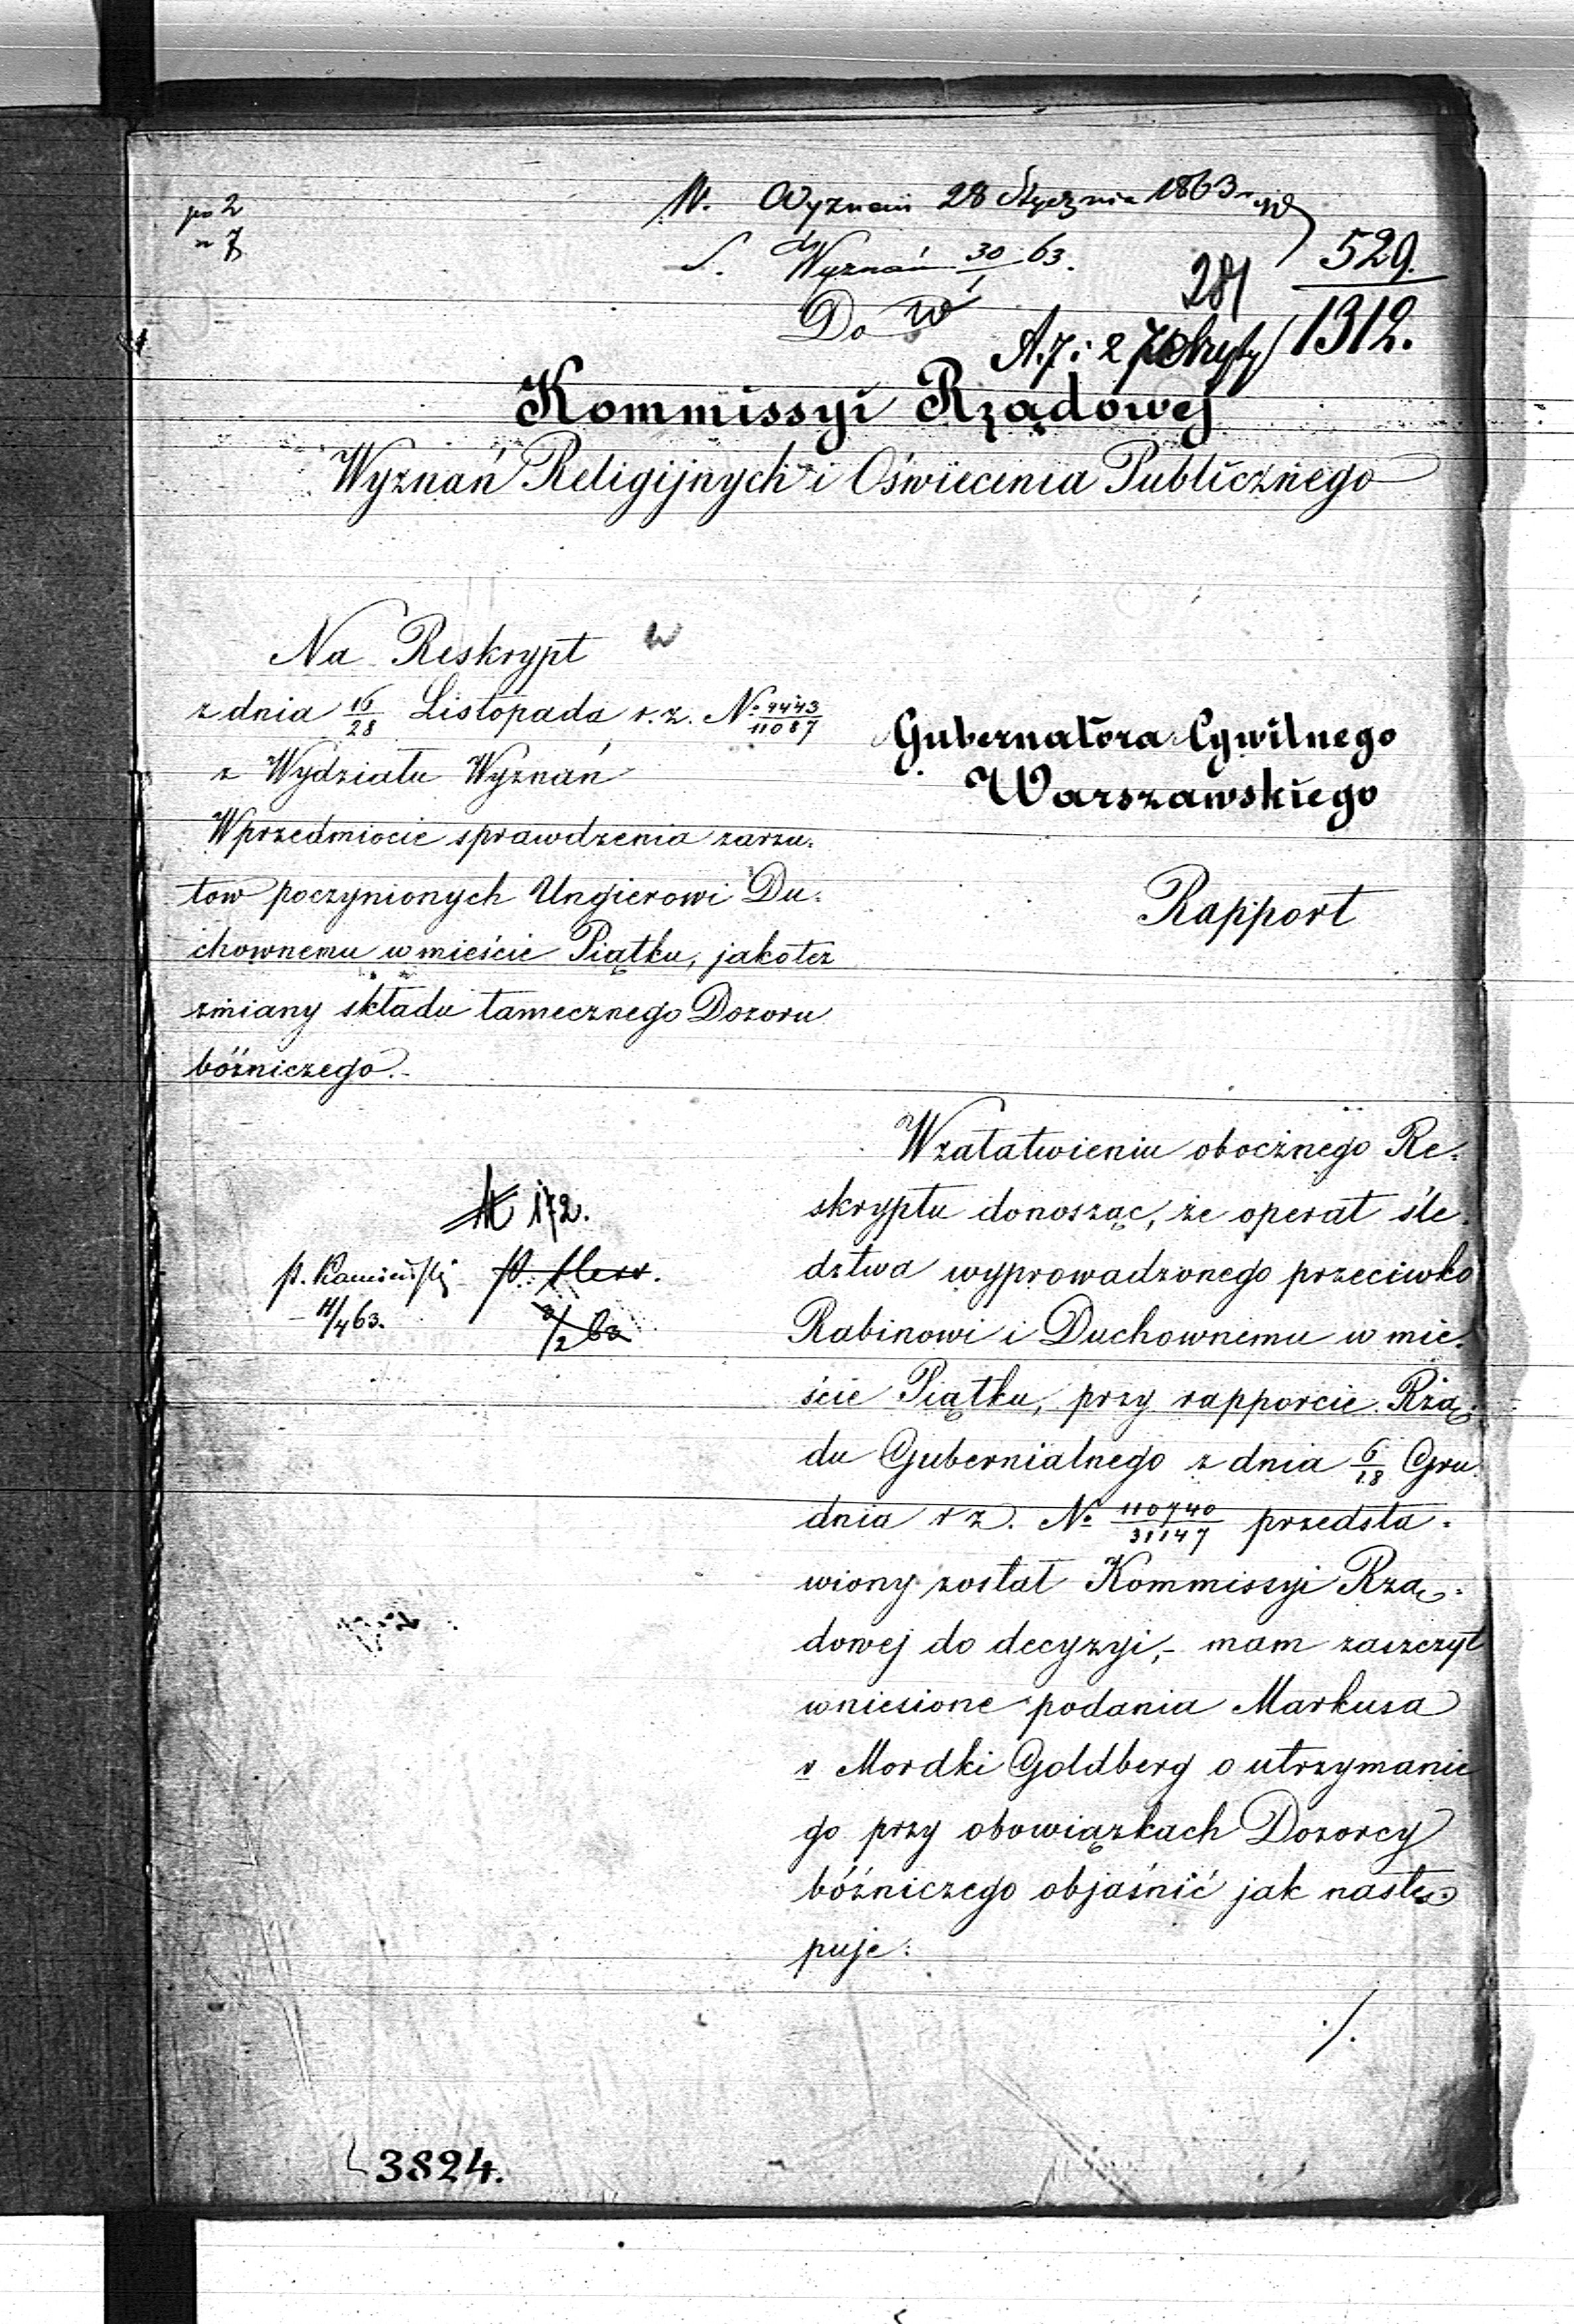 po 2
" 7
W. Wyznań 28 Stycznia 1863
S. Wyznań 30/1 63.
529.
1312.
281
Do W
A. 7 i 2
Kommissyi Rządowej
Wyznań Religijnych i Oświecenia Publicznego
Na Reskrypt
z dnia 16/28 Listopada r. z. No 4443/11087
z Wydziału Wyznań
W przedmiocie sprawdzenia zarzu-
tow poczynionych Ungierowi Du-
chownemu w mieście Piątku, jakoteż
zmiany składu tamecznego Dozoru
bóżniczego.-
Gubernatora Cywilnego
Warszawskiego
Rapport
172.
p. Kamieński
11/4 63.
3/2 63
W załatwieniu obocznego Re-
skryptu donosząc, że operat śle-
dztwa wyprowadzonego przeciwko
Rabinowi i Duchownemu w mie-
ście Piątku, przy rapporcie Rzą-
du Gubernialnego z dnia 6/18 Gru
dnia r z. No 110740/31147 przedsta-
wiony został Kommissyi Rzą-
dowej do decyzyi,- mam zaszczyt
wniesione podania Markusa
v Mordki Goldberg o utrzymanie
go przy obowiązkach Dozorcy
bóżniczego objaśnić jak nastę-
puje:
./.
3824.